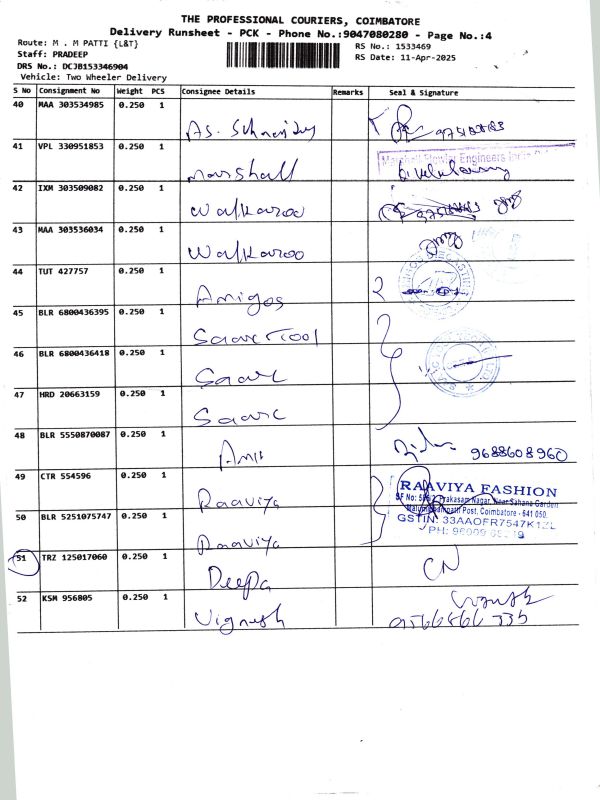 THE PROFESSIONAL COURIERS, COIMBATORE
Delivery Runsheet - PCK - Phone No.:9047080280 - Page No.:4
Route: M . M PATTI {L&T}
RS No.: 1533469
Staff: PRADEEP
RS Date: 11-Apr-2025
DRS No.: DCJB153346904
Vehicle: Two Wheeler Delivery
S No Consignment No Weight PCS Consignee Details Remarks Seal & Signature
40 MAA 303534985 0.250 1
41 VPL 330951853 0.250 1 Marshall
42 IXM 303509082 0.250 1 Walkaroo
43 MAA 303536034 0.250 1 Walkaroo
44 TUT 427757 0.250 1 Amigos
45 BLR 6800436395 0.250 1 Saarc Tool
46 BLR 6800436418 0.250 1 Saarc
47 HRD 20663159 0.250 1 Saarc
48 BLR 5550870087 0.250 1 9688608960
49 CTR 554596 0.250 1 Raaviya
RAAVIYA FASHION
Prakasam Nagar, Near Sahana Garden
Post, Coimbatore - 641 050.
GSTIN: 33AAOFR7547K1ZL
50 BLR 5251075747 0.250 1 Raaviya
51 TRZ 125017060 0.250 1 Deepa CN
52 KSM 956805 0.250 1 Vignesh